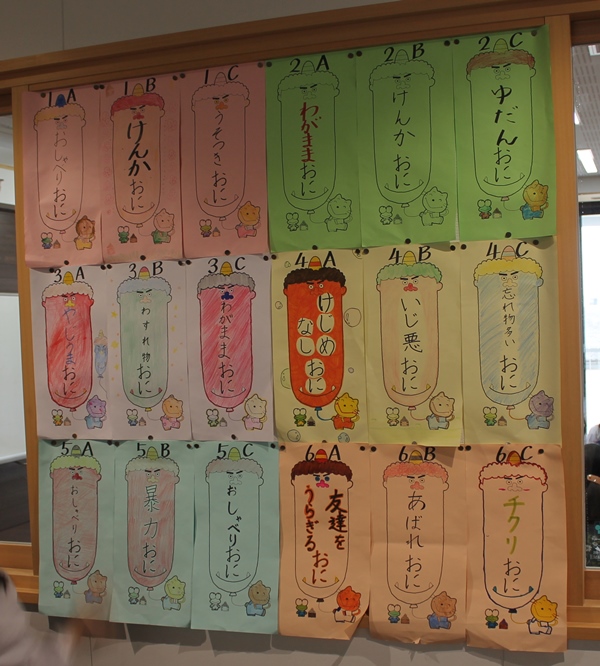 1A
おしゃべりおに
1B
けんかおに
1C
うそつきおに
2A
わがままおに
2B
けんかおに
2C
ゆだんおに
3A
おに
3B
わすれ物おに
3C
わがままおに
4A
けじめ
なし
おに
4B
いじ悪おに
4C
忘れ物多いおに
5A
おしゃべりおに
5B
暴力おに
5C
おしゃべりおに
6A
友達を
うらぎる
おに
6B
あばれおに
6C
チクリおに